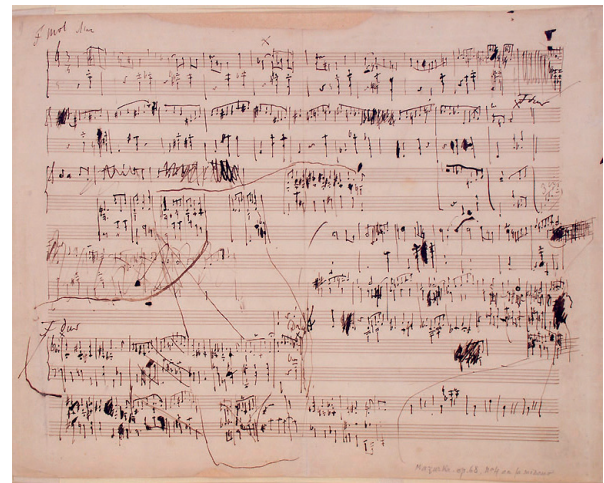 F mol
F dur
F dur
Mazurka. op 68, N°4 en fa mineur